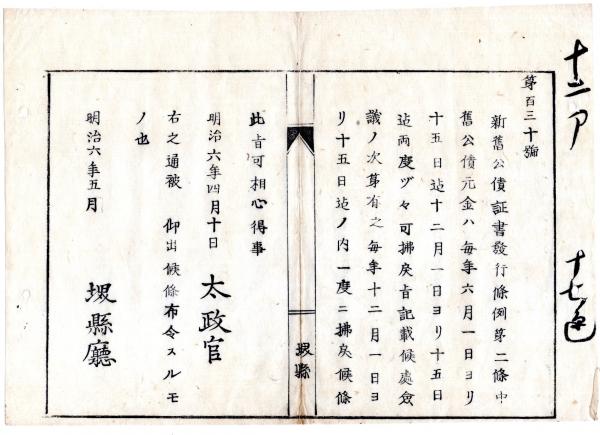 第百三十號
新舊公債証書發行條例第二條中
舊公債元金ハ每年六月一日ヨリ
十五日迠十二月一日ヨリ十五日
迠両度ヅヽ可拂戾旨記載候處僉
議ノ次第有之每年十二月一日ヨ
リ十五日迠ノ内一度ニ拂戾候條
堺縣
此旨可相心得事
明治六年四月十日 太政官
右之通被 仰出候條布令スルモ
ノ也
明治六年五月 堺縣廳